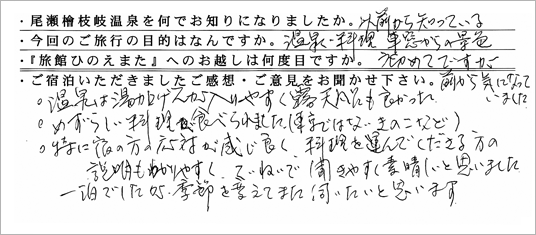 ・尾瀬檜枝岐温泉を何でお知りになりましたか。以前から知っている
・今回のご旅行の目的はなんですか。温泉・料理 車窓からの景色
・『旅館ひのえまた』へのお越しは何度目ですか。初めてですが
・ご宿泊いただきましたご感想・ご意見をお聞かせ下さい。前から気になって
いました
○温泉は湯かげんが入りやすく露天風呂も良かった
○めずらしい料理が食べられました(東京ではないきのこなど)
○特に夜の方の応対が感じ良く 料理を運んでくださる方の
説明もわかりやすく、ていねいで聞きやすく素晴しいと思いました
一泊でしたが季節を変えてまた伺いたいと思います